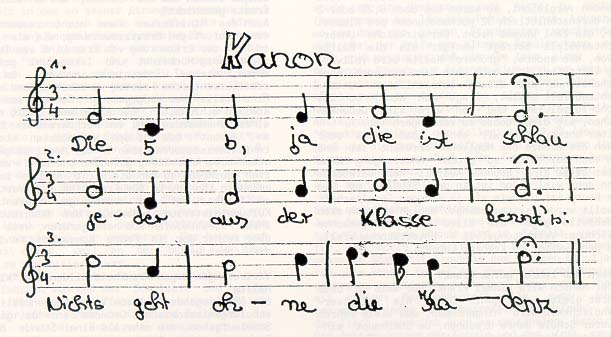 Kanon
1.
3
4
Die 5 b, ja die ist schlau
2.
3
4
je-der aus der Klasse kennt's:
3.
3
4
Nichts geht oh-ne die Ka-denz